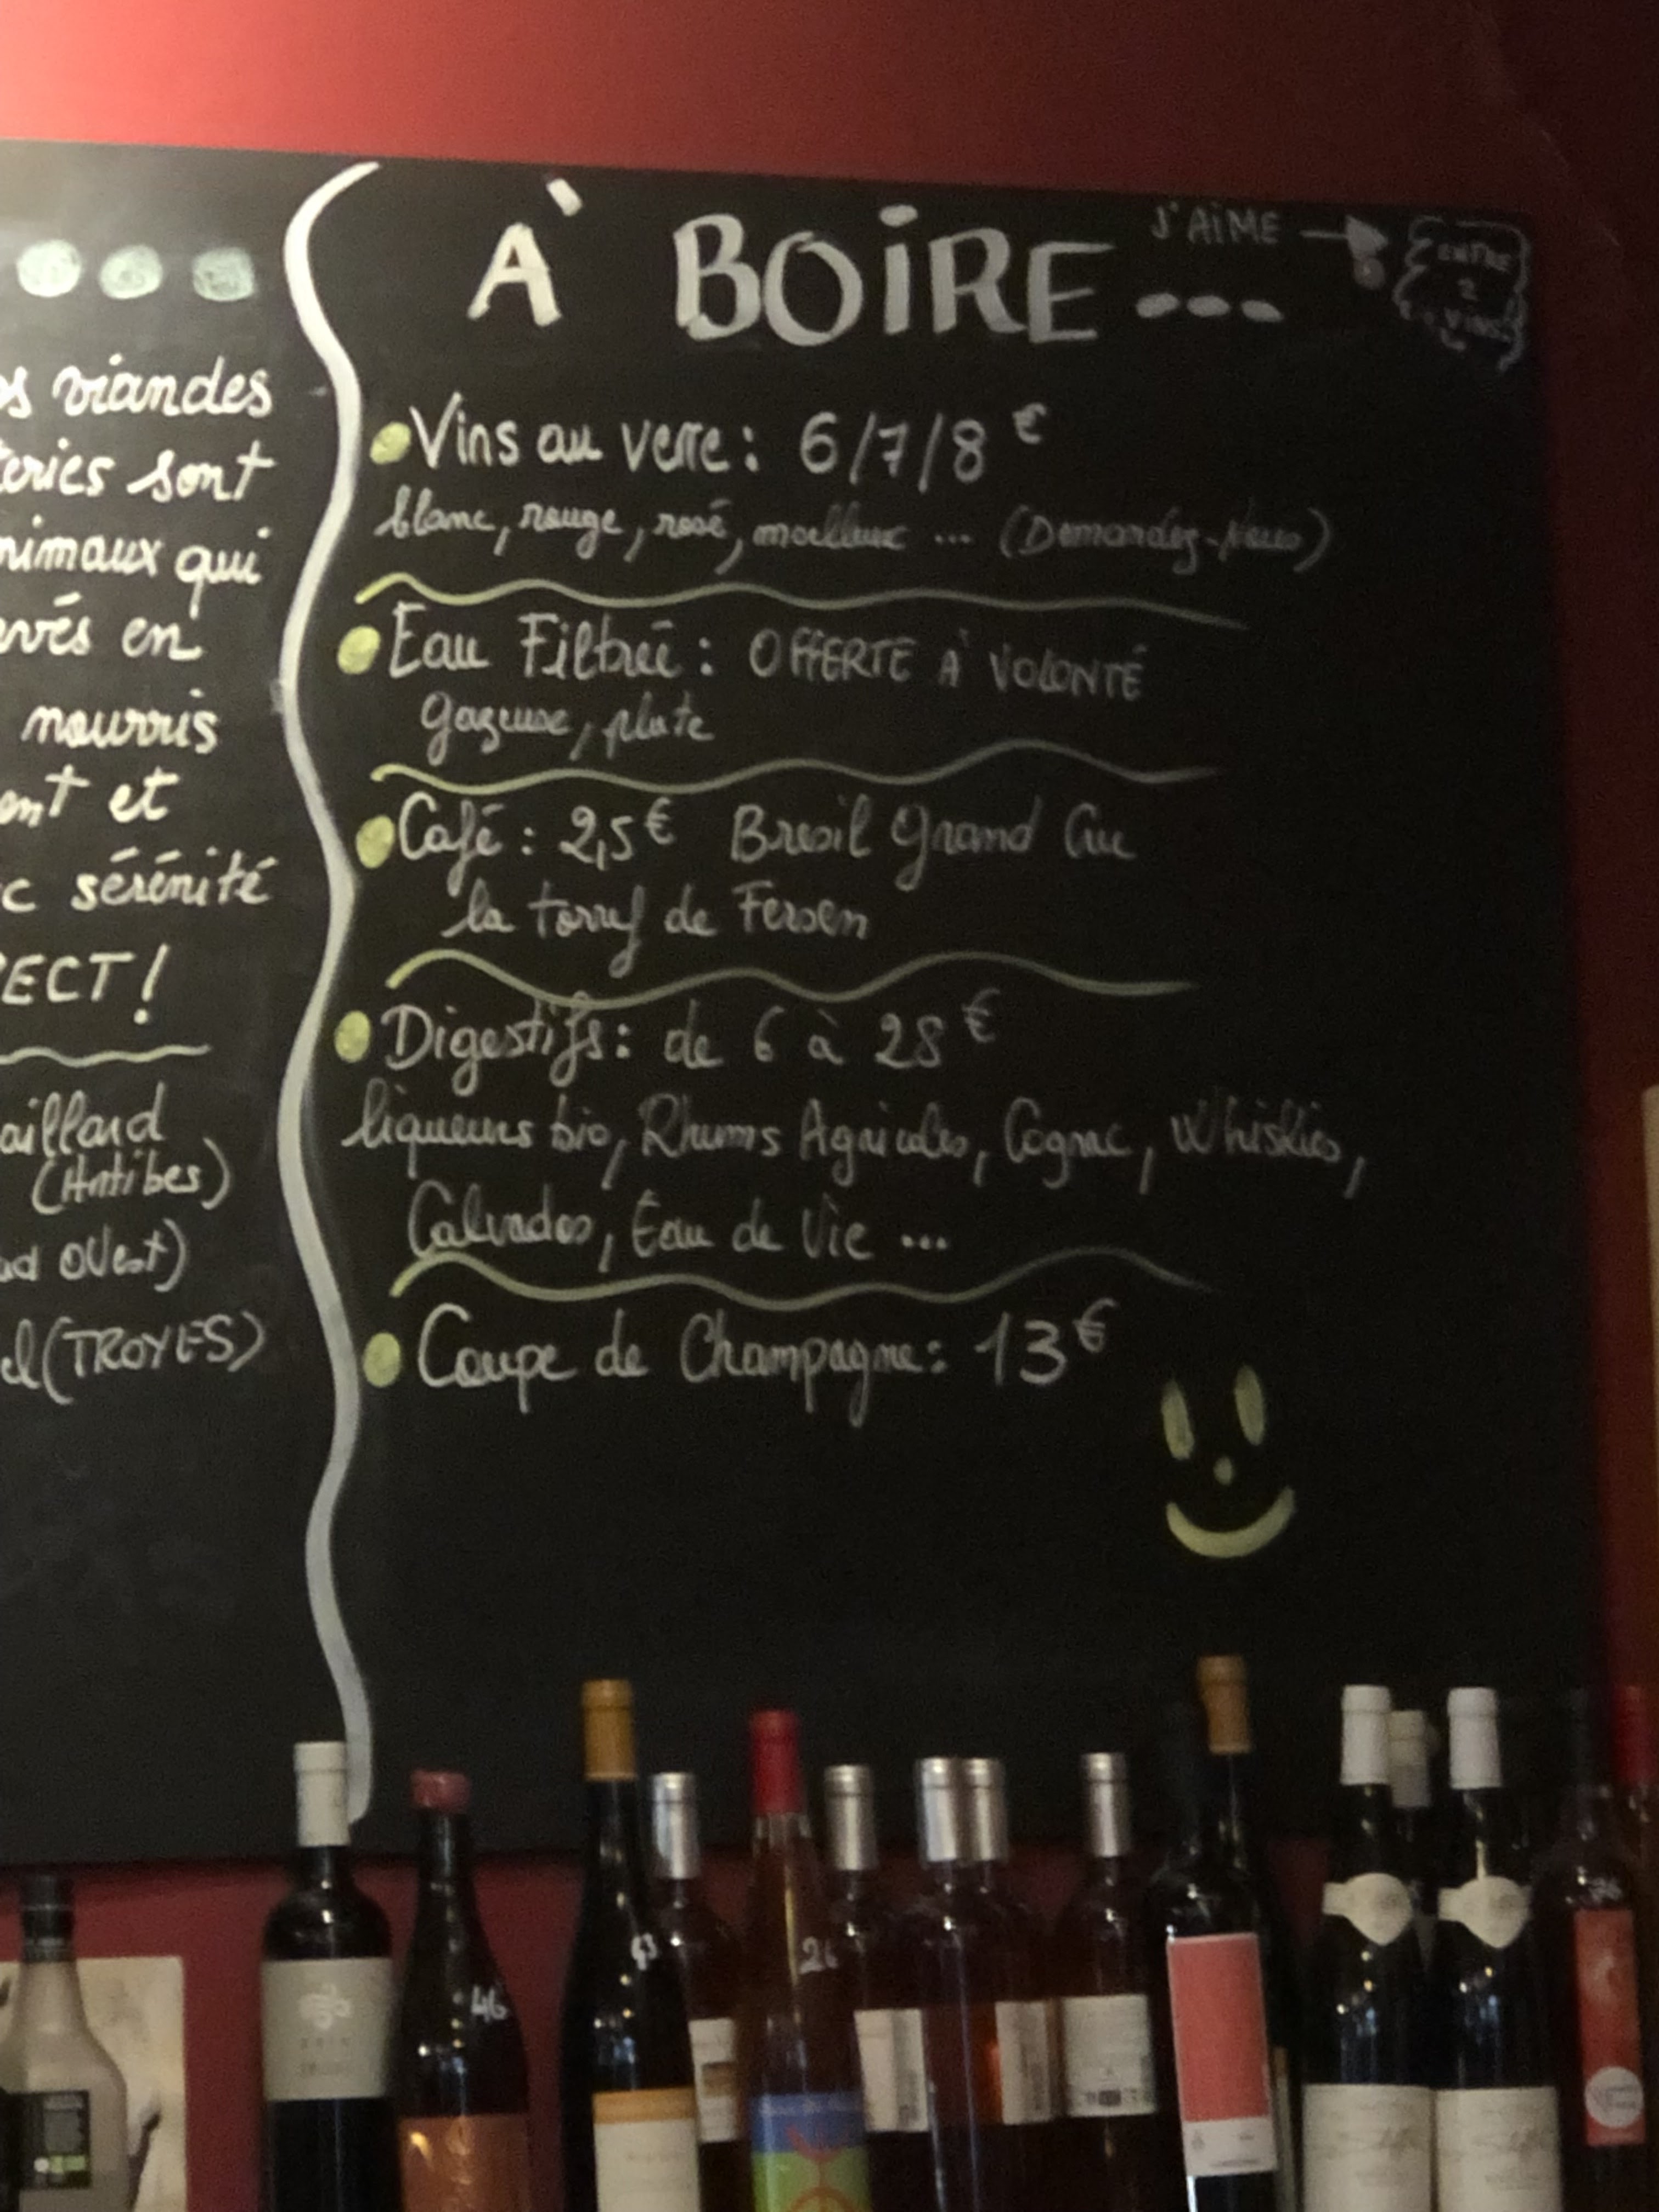 viandes
sont
qui
en
nourris
et
sérénité
(Antibes)
(TROYES)
À BOIRE ---
J'AIME →
ENTRE
2
VINS
Vins au verre : 6/7/8 €
blanc, rouge, rosé, moelleux ... (Demandez-Nous)
Eau Filtrée : OFFERTE À VOLONTÉ
gazeuse, plate
Café : 2,5 € Bresil Grand Cru
la torref de Fersen
Digestifs : de 6 à 28 €
liqueurs bio, Rhums Agricoles, Cognac, Whiskies,
Calvados, Eau de Vie ...
Coupe de Champagne : 13 €
46
26